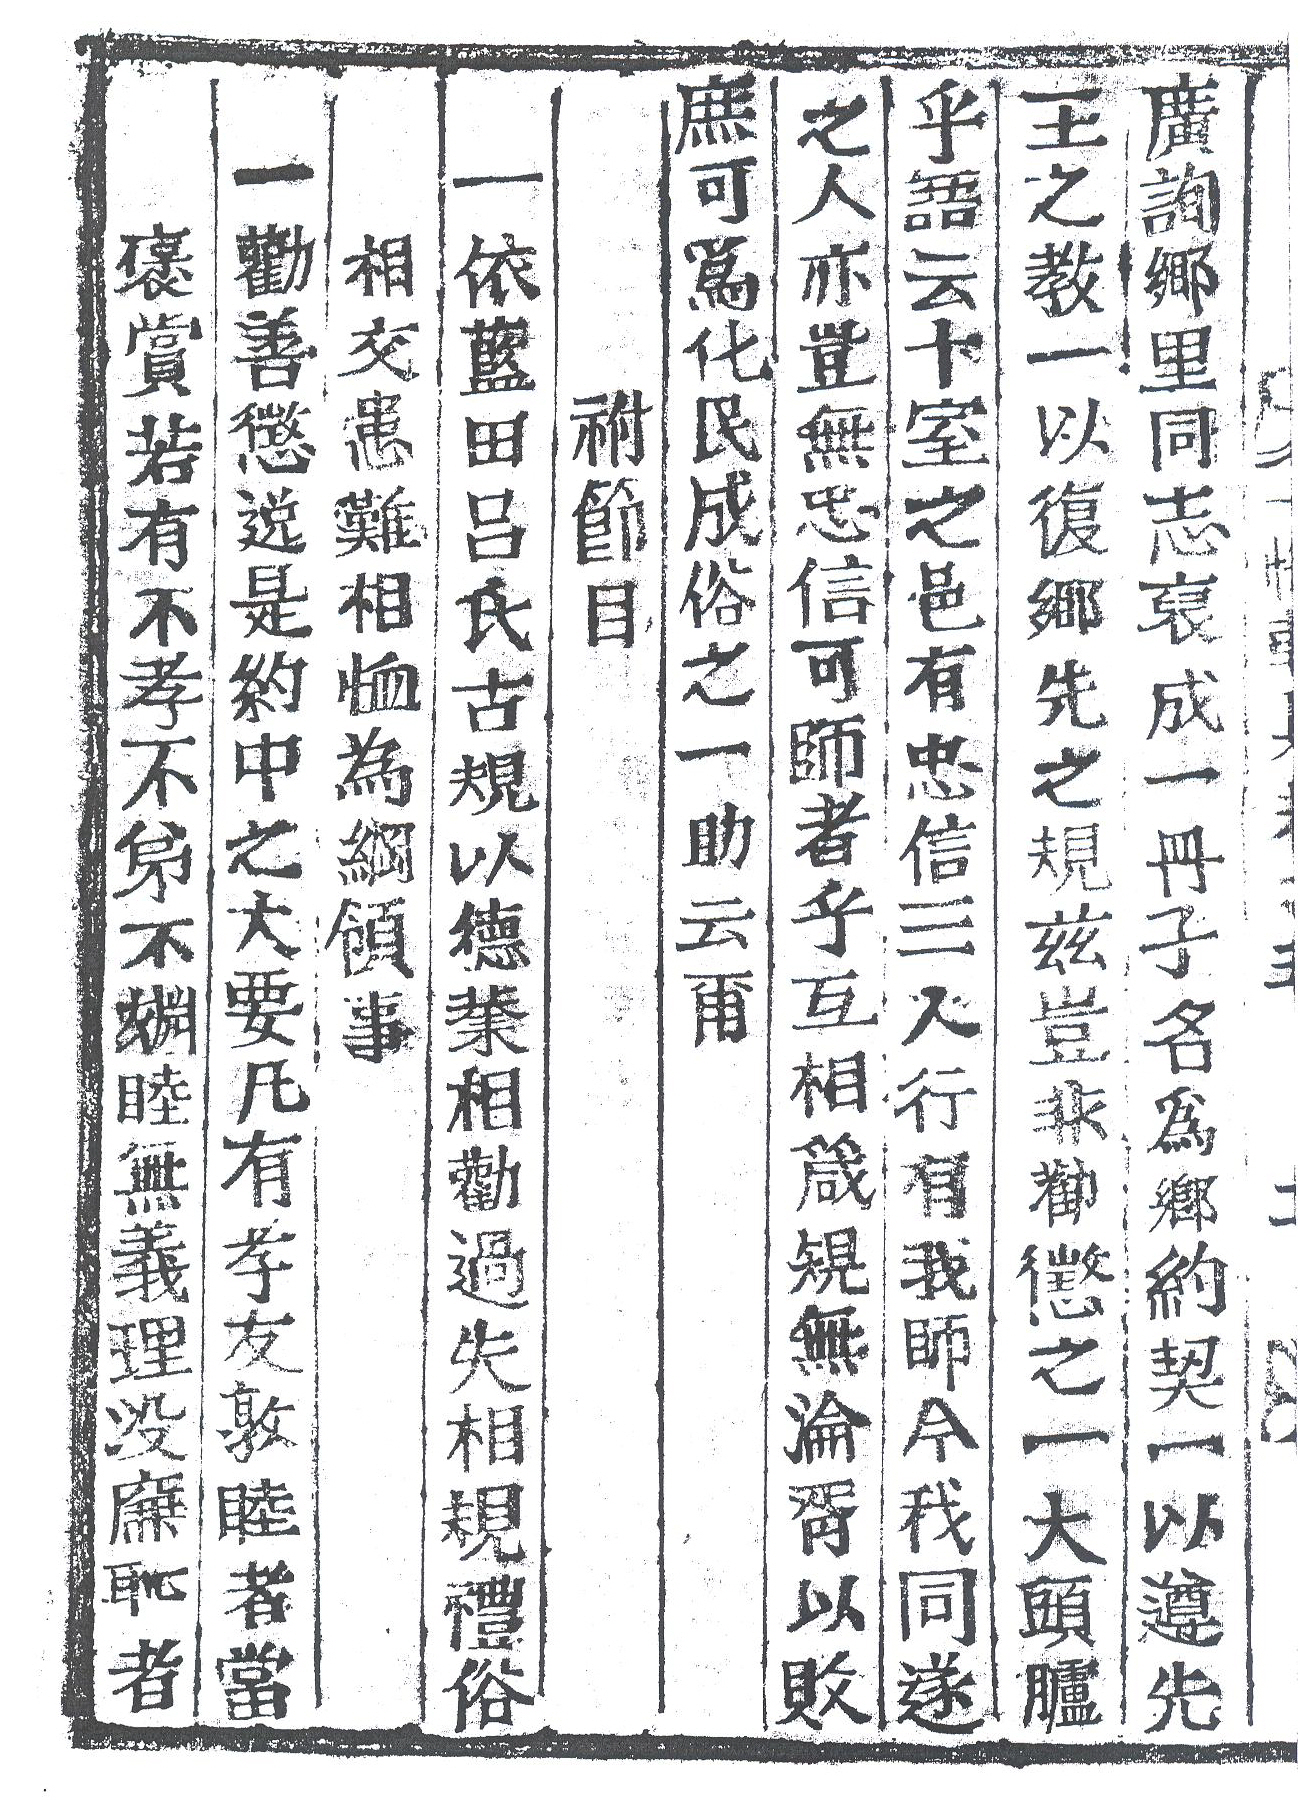 廣詢鄉里同志裒成一冊子名爲鄉約契一以遵先
王之教一以復鄉先之規玆豈非勸懲之一大頭臚
乎語云十室之邑有忠信三人行有我師今我同遂
之人亦豈無忠信可師者乎互相箴規無淪胥以敗
庶可爲化民成俗之一助云爾
祔節目
一依藍田呂氏古規以德業相勸過失相規禮俗
相交患難相恤為綱領事
一勸善懲惡是約中之大要凡有孝友敦睦者當
褒賞若有不孝不弟不婣睦無義理沒廉恥者